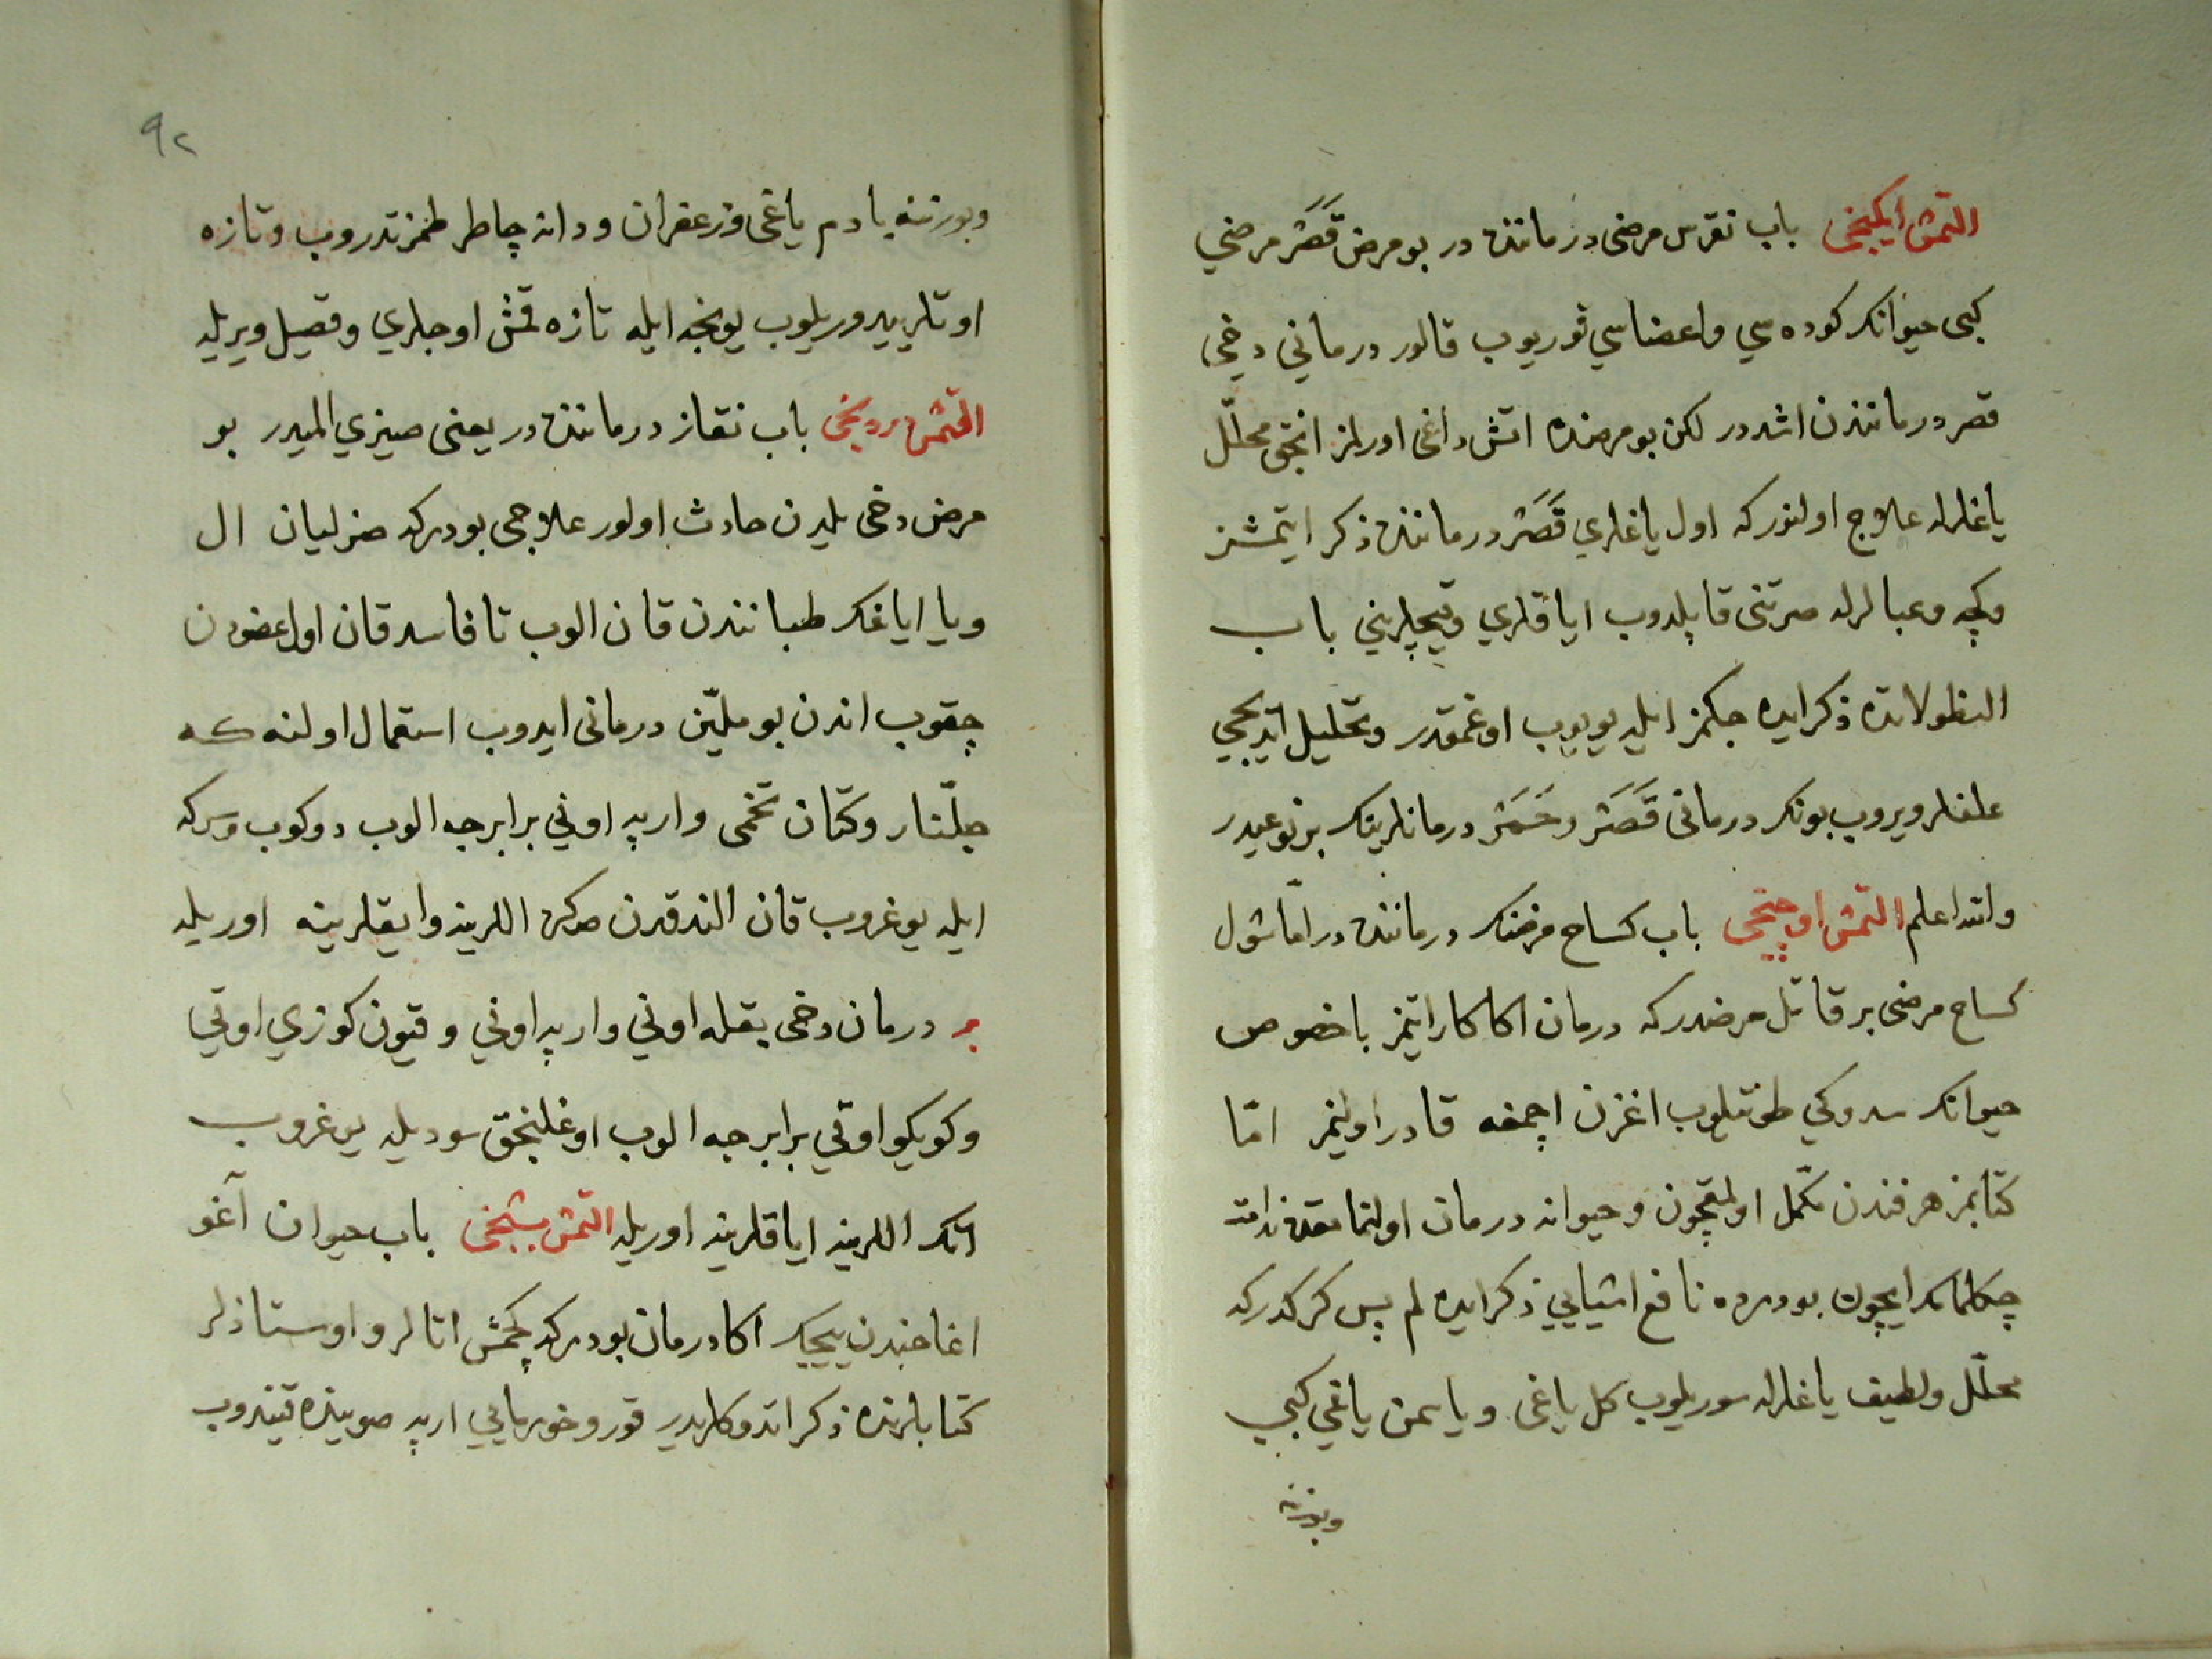 التمش ايكينجى باب نقرس مرضى درماننده در بو مرض قَصَر مرضي
كبى حيوانك كوده سي واعضاسي قوريوب قالور درماني دخي
قصر درمانندن اشددر لكن بو مرضده اتش داغى اورلمز انجق محلّل
ياغلرله علاج اولنور كه اول ياغلري قَصَر درماننده ذكر ايتمشز
وكچه وعبالرله صرتنى قاپلدوب اياقلري وقيچلريني باب
النظولاتده ذكر ايده جكمز ايله يويوب اوغمقدر وتحليل ايديجي
علفلر ويروب بونك درمانى قَصَر وحَمَر درمانلرينك بر نوعيدر
والله اعلم التمش اوچنجى باب كساح مرضنك درماننده در امّا شول
كساح مرضى بر قاتل مرضدر كه درمان اكا كار ايتمز باخصوص
حيوانك سدوكي طوتيلوب اغزن اچمغه قادر اولنمز امّا
كتابمز هر فندن مكمّل اولمقچون وحيوانه درمان اولنمامقدن ندامت
چكلمامك ايچون بودرده نافع اشيايي ذكر ايده لم پس كركدركه
محلّل ولطيف ياغلرله سوريلوب كل ياغى وياسمن ياغي كبي
وبورننه
٩٢
وبورننه بادم ياغى وزعفران ودانه چاطر طمزتدروب وتازه
اوتلر يدوريلوب يونجه ايله تازه قمش اوجلري وقصيل ويريله
التمش دردنجى باب نقاز درماننده در يعنى صيزي الميدر بو
مرض دخى يلدن حادث اولور علاجى بودركه صزليان ال
ويا اياغك طباننندن قان الوب تا فاسد قان اول عضودن
چقوب اندن بو مليّن درمانى ايدوب استعمال اولنه كه
جلّنار وكتان تخمى وارپه اوني برابرجه الوب دوكوب وسركه
ايله يوغروب قان الندقدن صكره اللرينه وايقلرينه اوريله
بر درمان دخى بقله اوني وارپه اوني وقيون كوزي اوتي
وكويكو اوتي برابرجه الوب اوغلنجق سوديله يوغروب
انك اللرينه اياقلرينه اوريله التمش بشنجى باب حيوان آغو
اغاجندن ييجك اكا درمان بودركه كچمش اتالر واوستاذلر
كتابلرنده ذكر اتدوكلريدر قورو خورمايي ارپه صوينده قيندروب